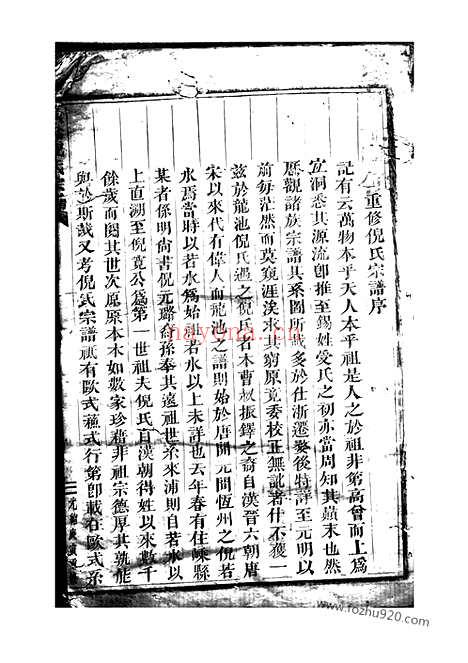 重修倪氏宗譜序
記有云萬物本乎天人本乎祖是人之於祖非第高曾而上爲
宜洞悉其源流卽推至錫姓受氏之初亦當周知其巔末也然
歷觀諸族宗譜其系圖所載多於仕浙遷婺後特詳至元明以
前每茫然而莫窺涯涘求其窮原竟委校正無訛者什不獲一
茲於龍池倪氏遇之倪氏在木曹叔振鐸之裔自漢晉六朝唐
宋以來代有偉人而龍池之譜則始於唐開元間恆州之倪若
水焉當時以若水爲始祖若水以上未詳也去年春有住嵊縣
某者係明尚書倪元璐裔孫奉其遠祖世系來浦則自若水以
上直溯至倪寬公爲第一世祖夫倪氏自漢朝得姓以來數千
餘歲而閱其世次原原本本如數家珍藉非祖宗德厚其孰能
與於斯哉又考倪氏宗譜祇有歐式蘇式行第卽載在歐式系
nayona.cn
www.fozhu920.com